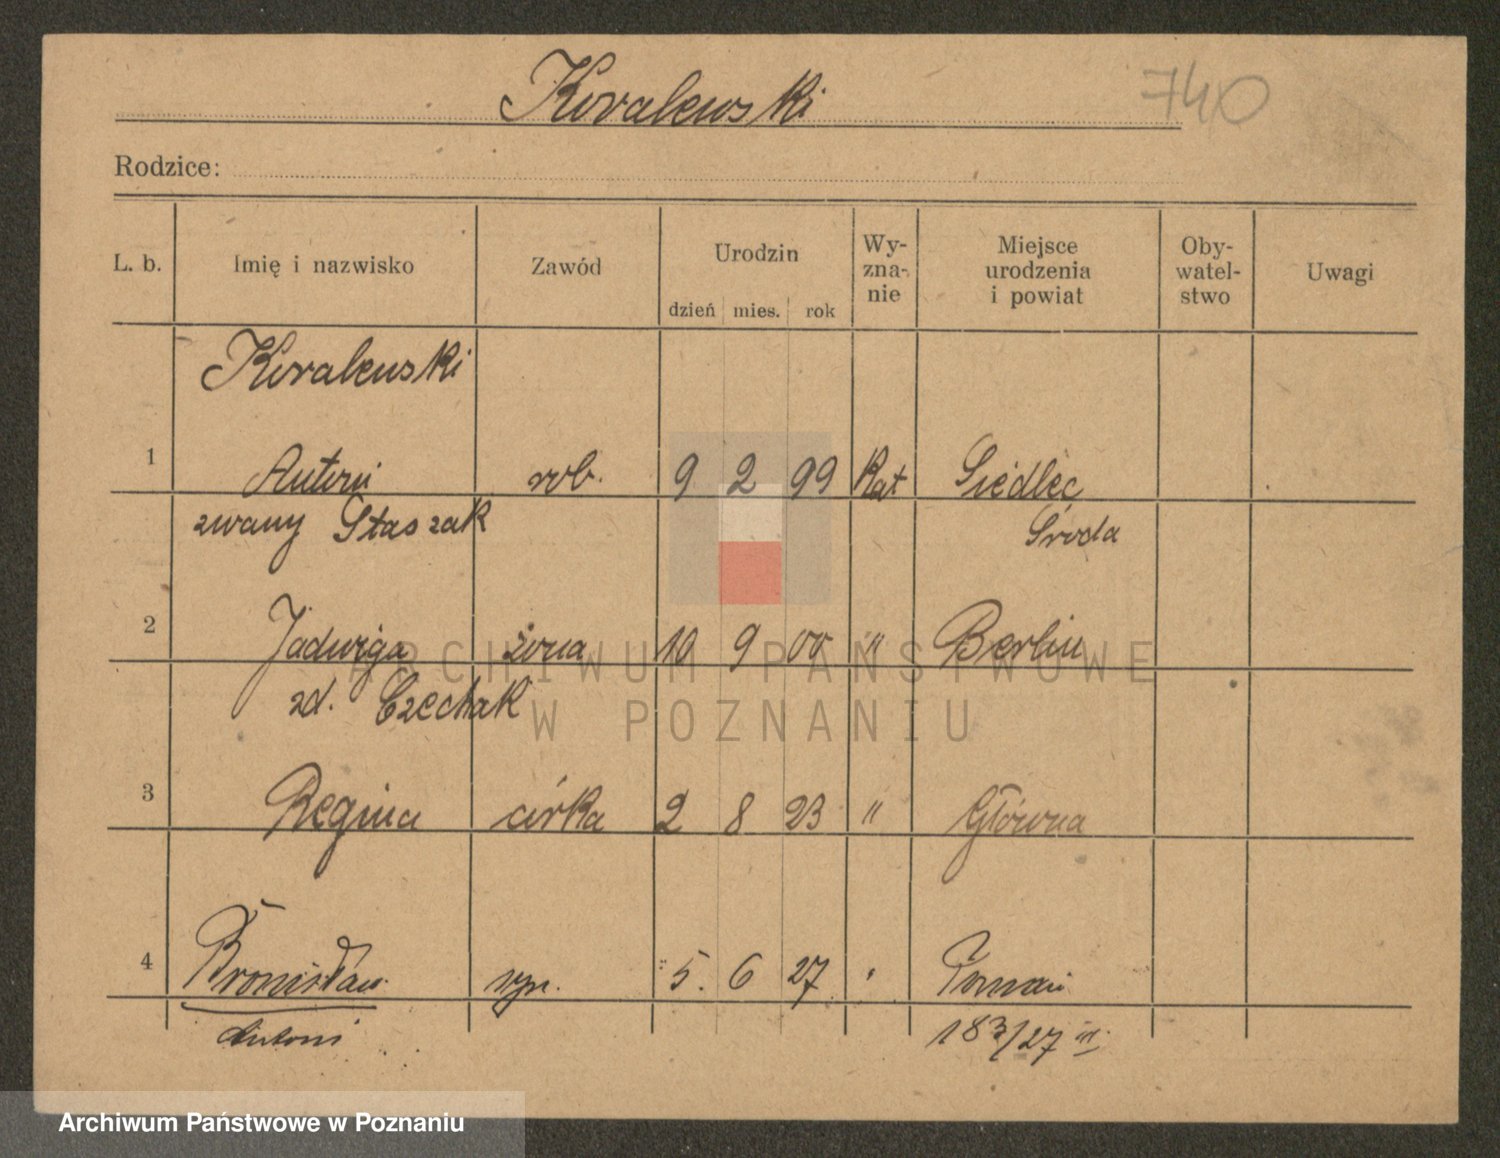 Kowalewski 740
Rodzice:
L. b. Imię i nazwisko Zawód Urodzin Wy-zna-nie Miejsce urodzenia i powiat Oby-watel-stwo Uwagi
dzień mies. rok
Kowalewski
1 Antoni rob. 9 2 99 Kat Siedlec
zwany Staszak Środa
2 Jadwiga żona 10 9 00 " Berlin
zd. Czechak
3 Regina córka 2 8 23 " Główna
4 Bronisław syn. 5. 6 27 " Poznań
Antoni 183/27 III.
ARCHIWUM PAŃSTWOWE
W POZNANIU
Archiwum Państwowe w Poznaniu